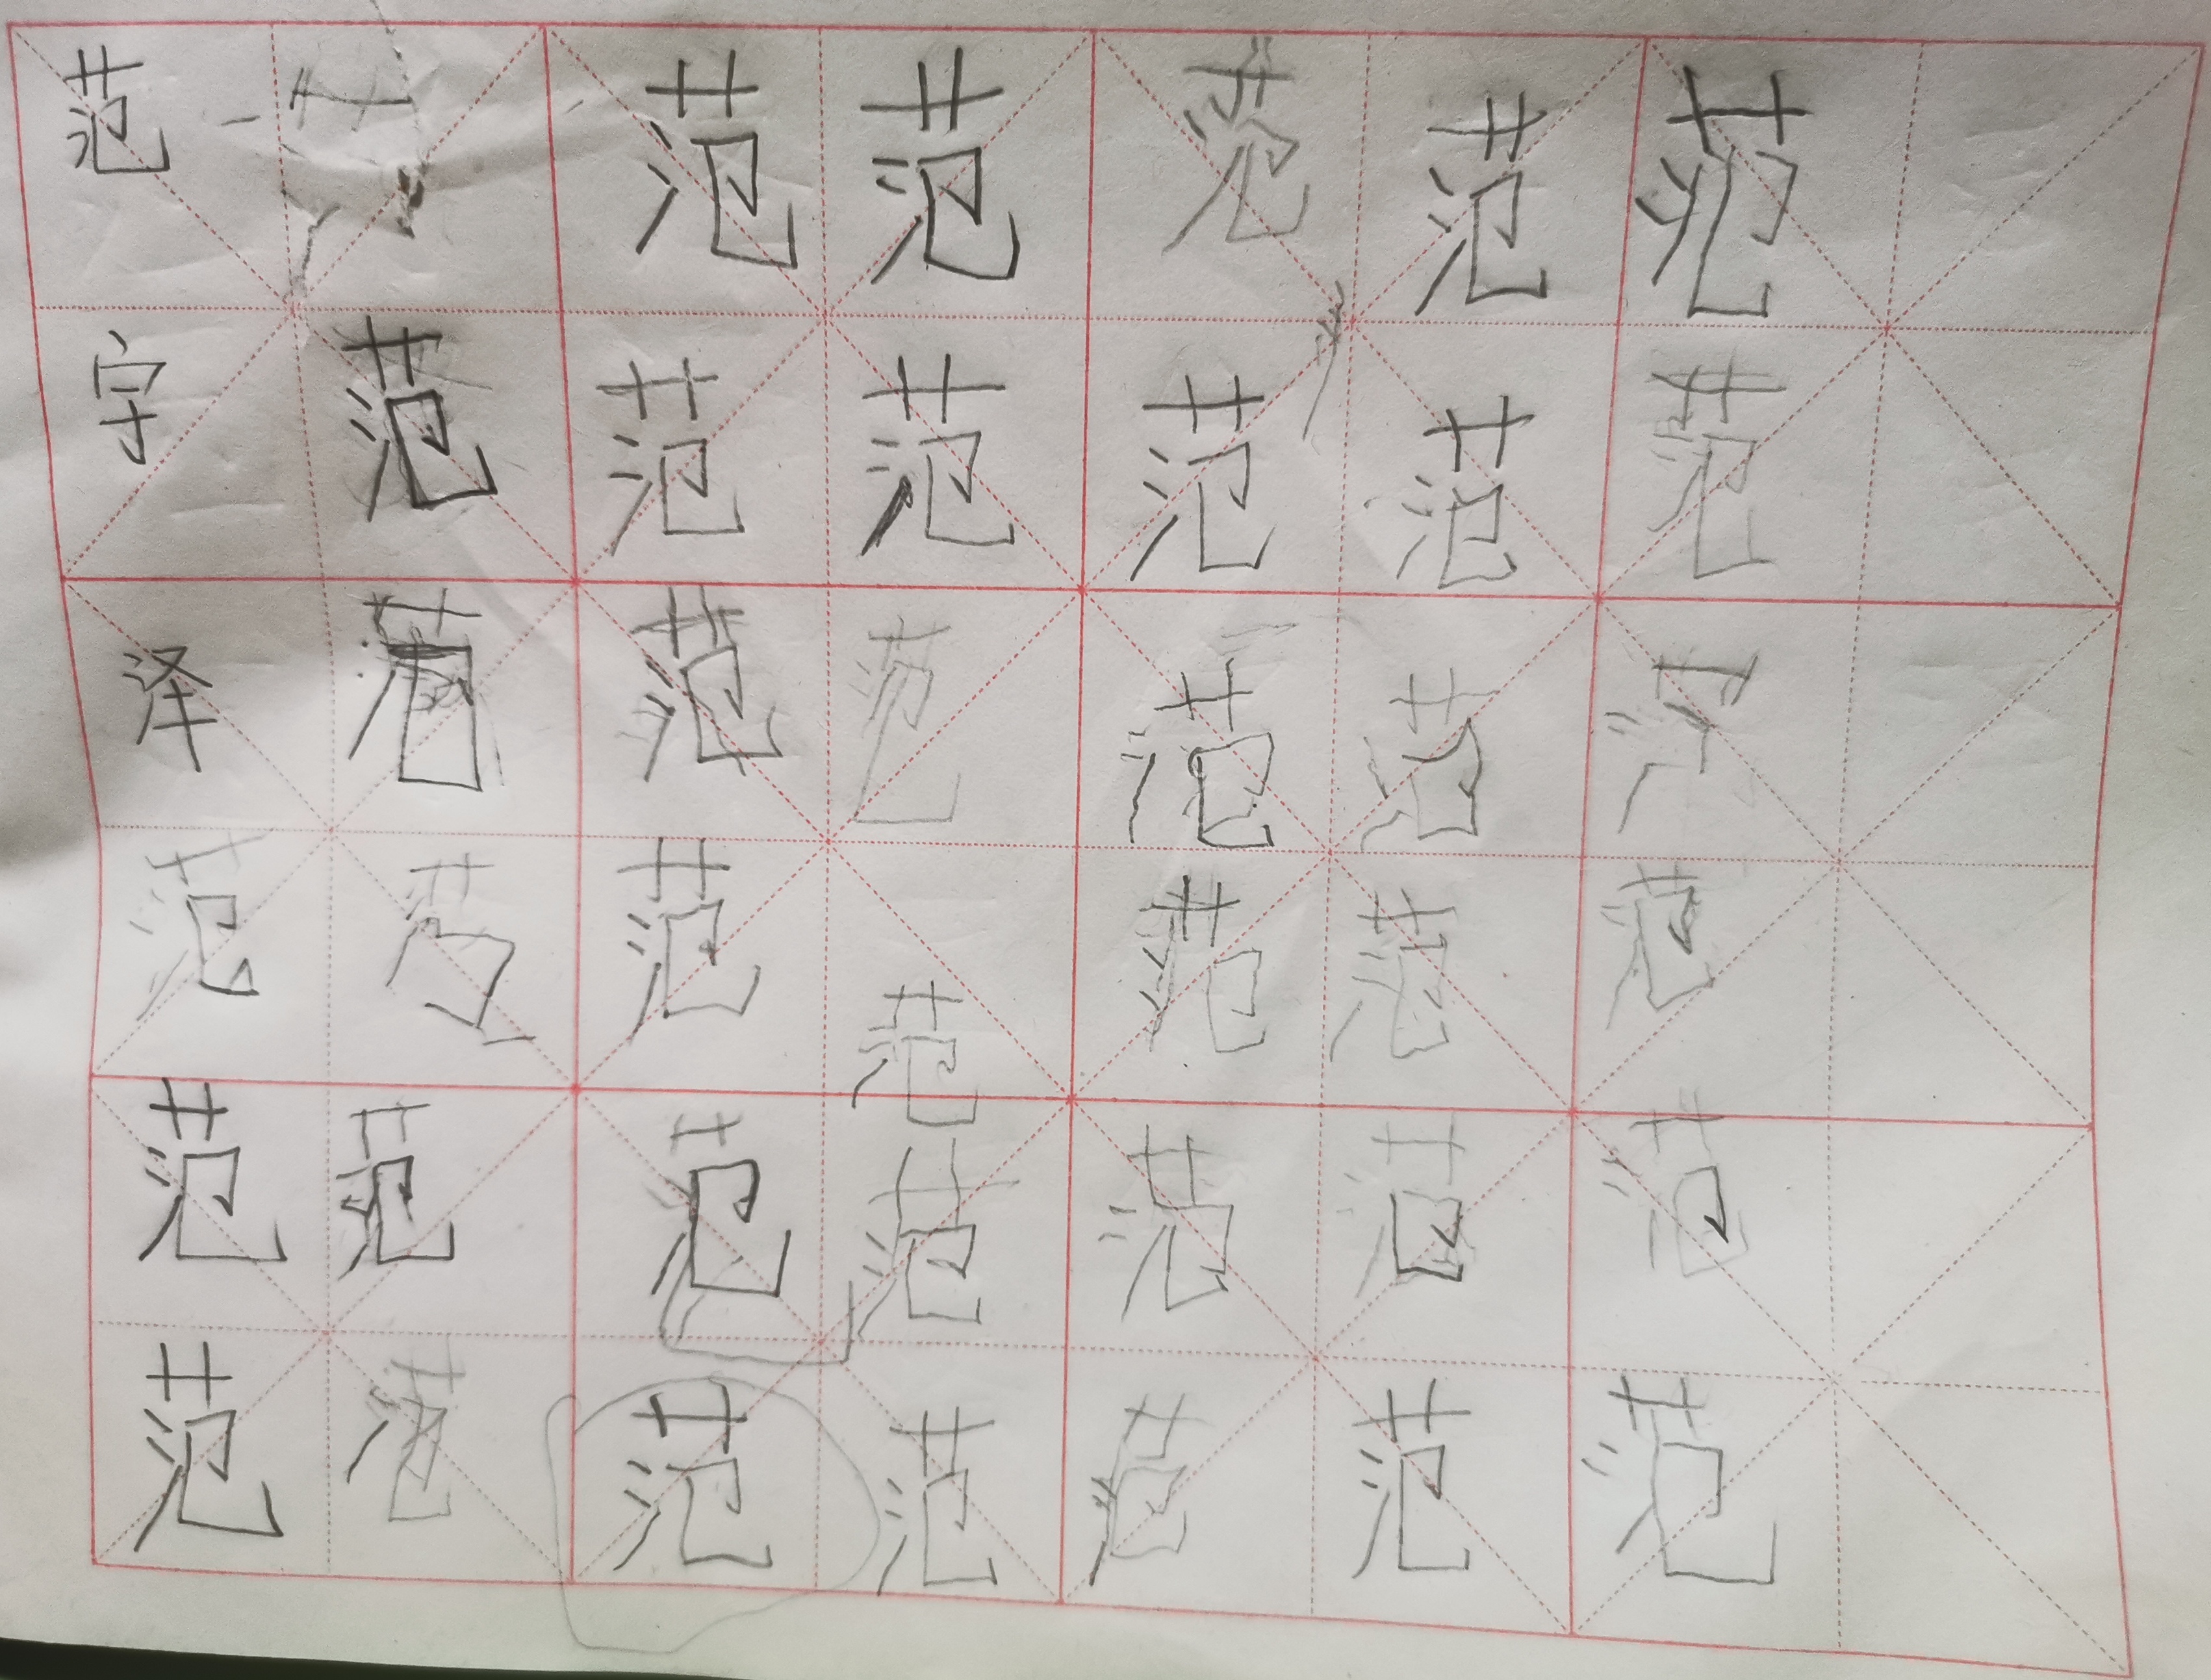 范 范 范 范 范 范
字 范 范 范 范 范 范
泽 范 范 范 范
范 范 范 范 范 范
范 范 范 范 范 范 范
范 范 范 范 范 范 范